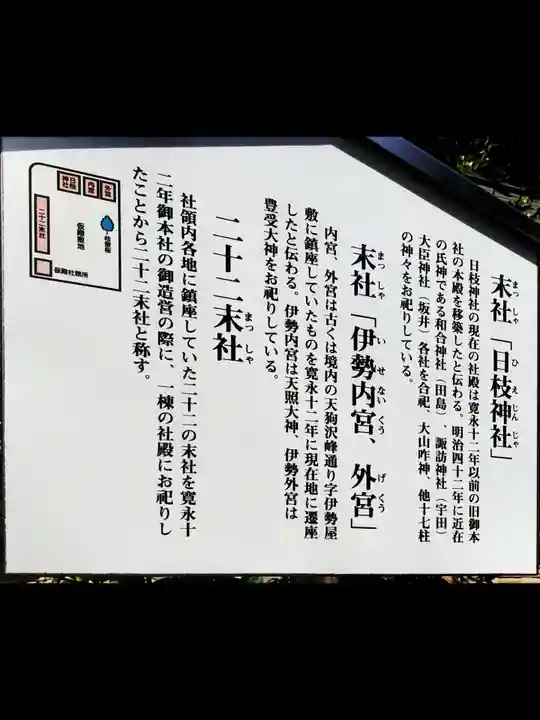 末社「日枝神社」
まっ しゃ ひ え じん じゃ
日枝神社の現在の社殿は寛永十二年以前の旧御本
社の本殿を移築したと伝わる。明治四十二年に近在
の氏神である和合神社（田島）、諏訪神社（宇田）
大臣神社（坂井）各社を合祀、大山咋神、他十七柱
の神々をお祀りしている。
末社「伊勢内宮、外宮」
まっ しゃ い せ ない くう げ くう
内宮、外宮は古くは境内の天狗沢峰通り字伊勢屋
敷に鎮座していたものを寛永十二年に現在地に遷座
したと伝わる。伊勢内宮は天照大神、伊勢外宮は
豊受大神をお祀りしている。
二十二末社
まつ しゃ
社領内各地に鎮座していた二十二の末社を寛永十
二年御本社の御造営の際に、一棟の社殿にお祀りし
たことから二十二末社と称す。
日枝神社
内宮
外宮
枝垂桜
仮殿敷地
二十二末社
仮殿社務所